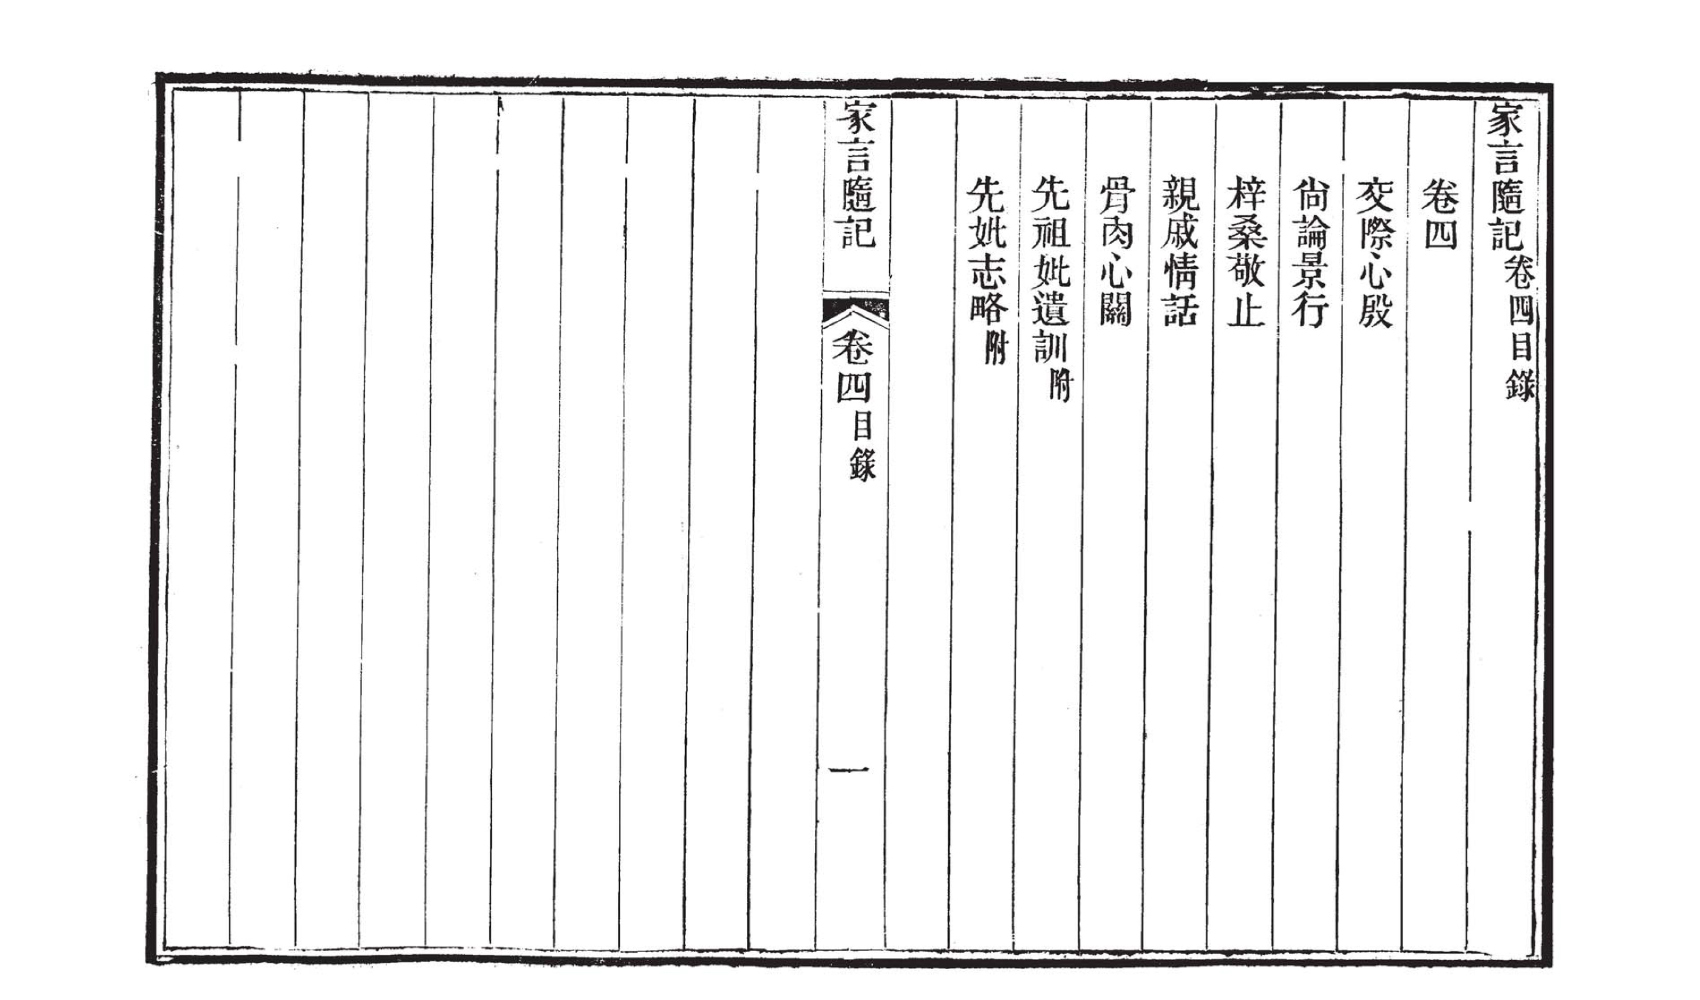 家言隨記卷四目錄
卷四
交際心殷
尙論景行
梓桑敬止
親戚情話
骨肉心關
先祖妣遺訓附
先妣志略附
家言隨記 卷四目錄 一